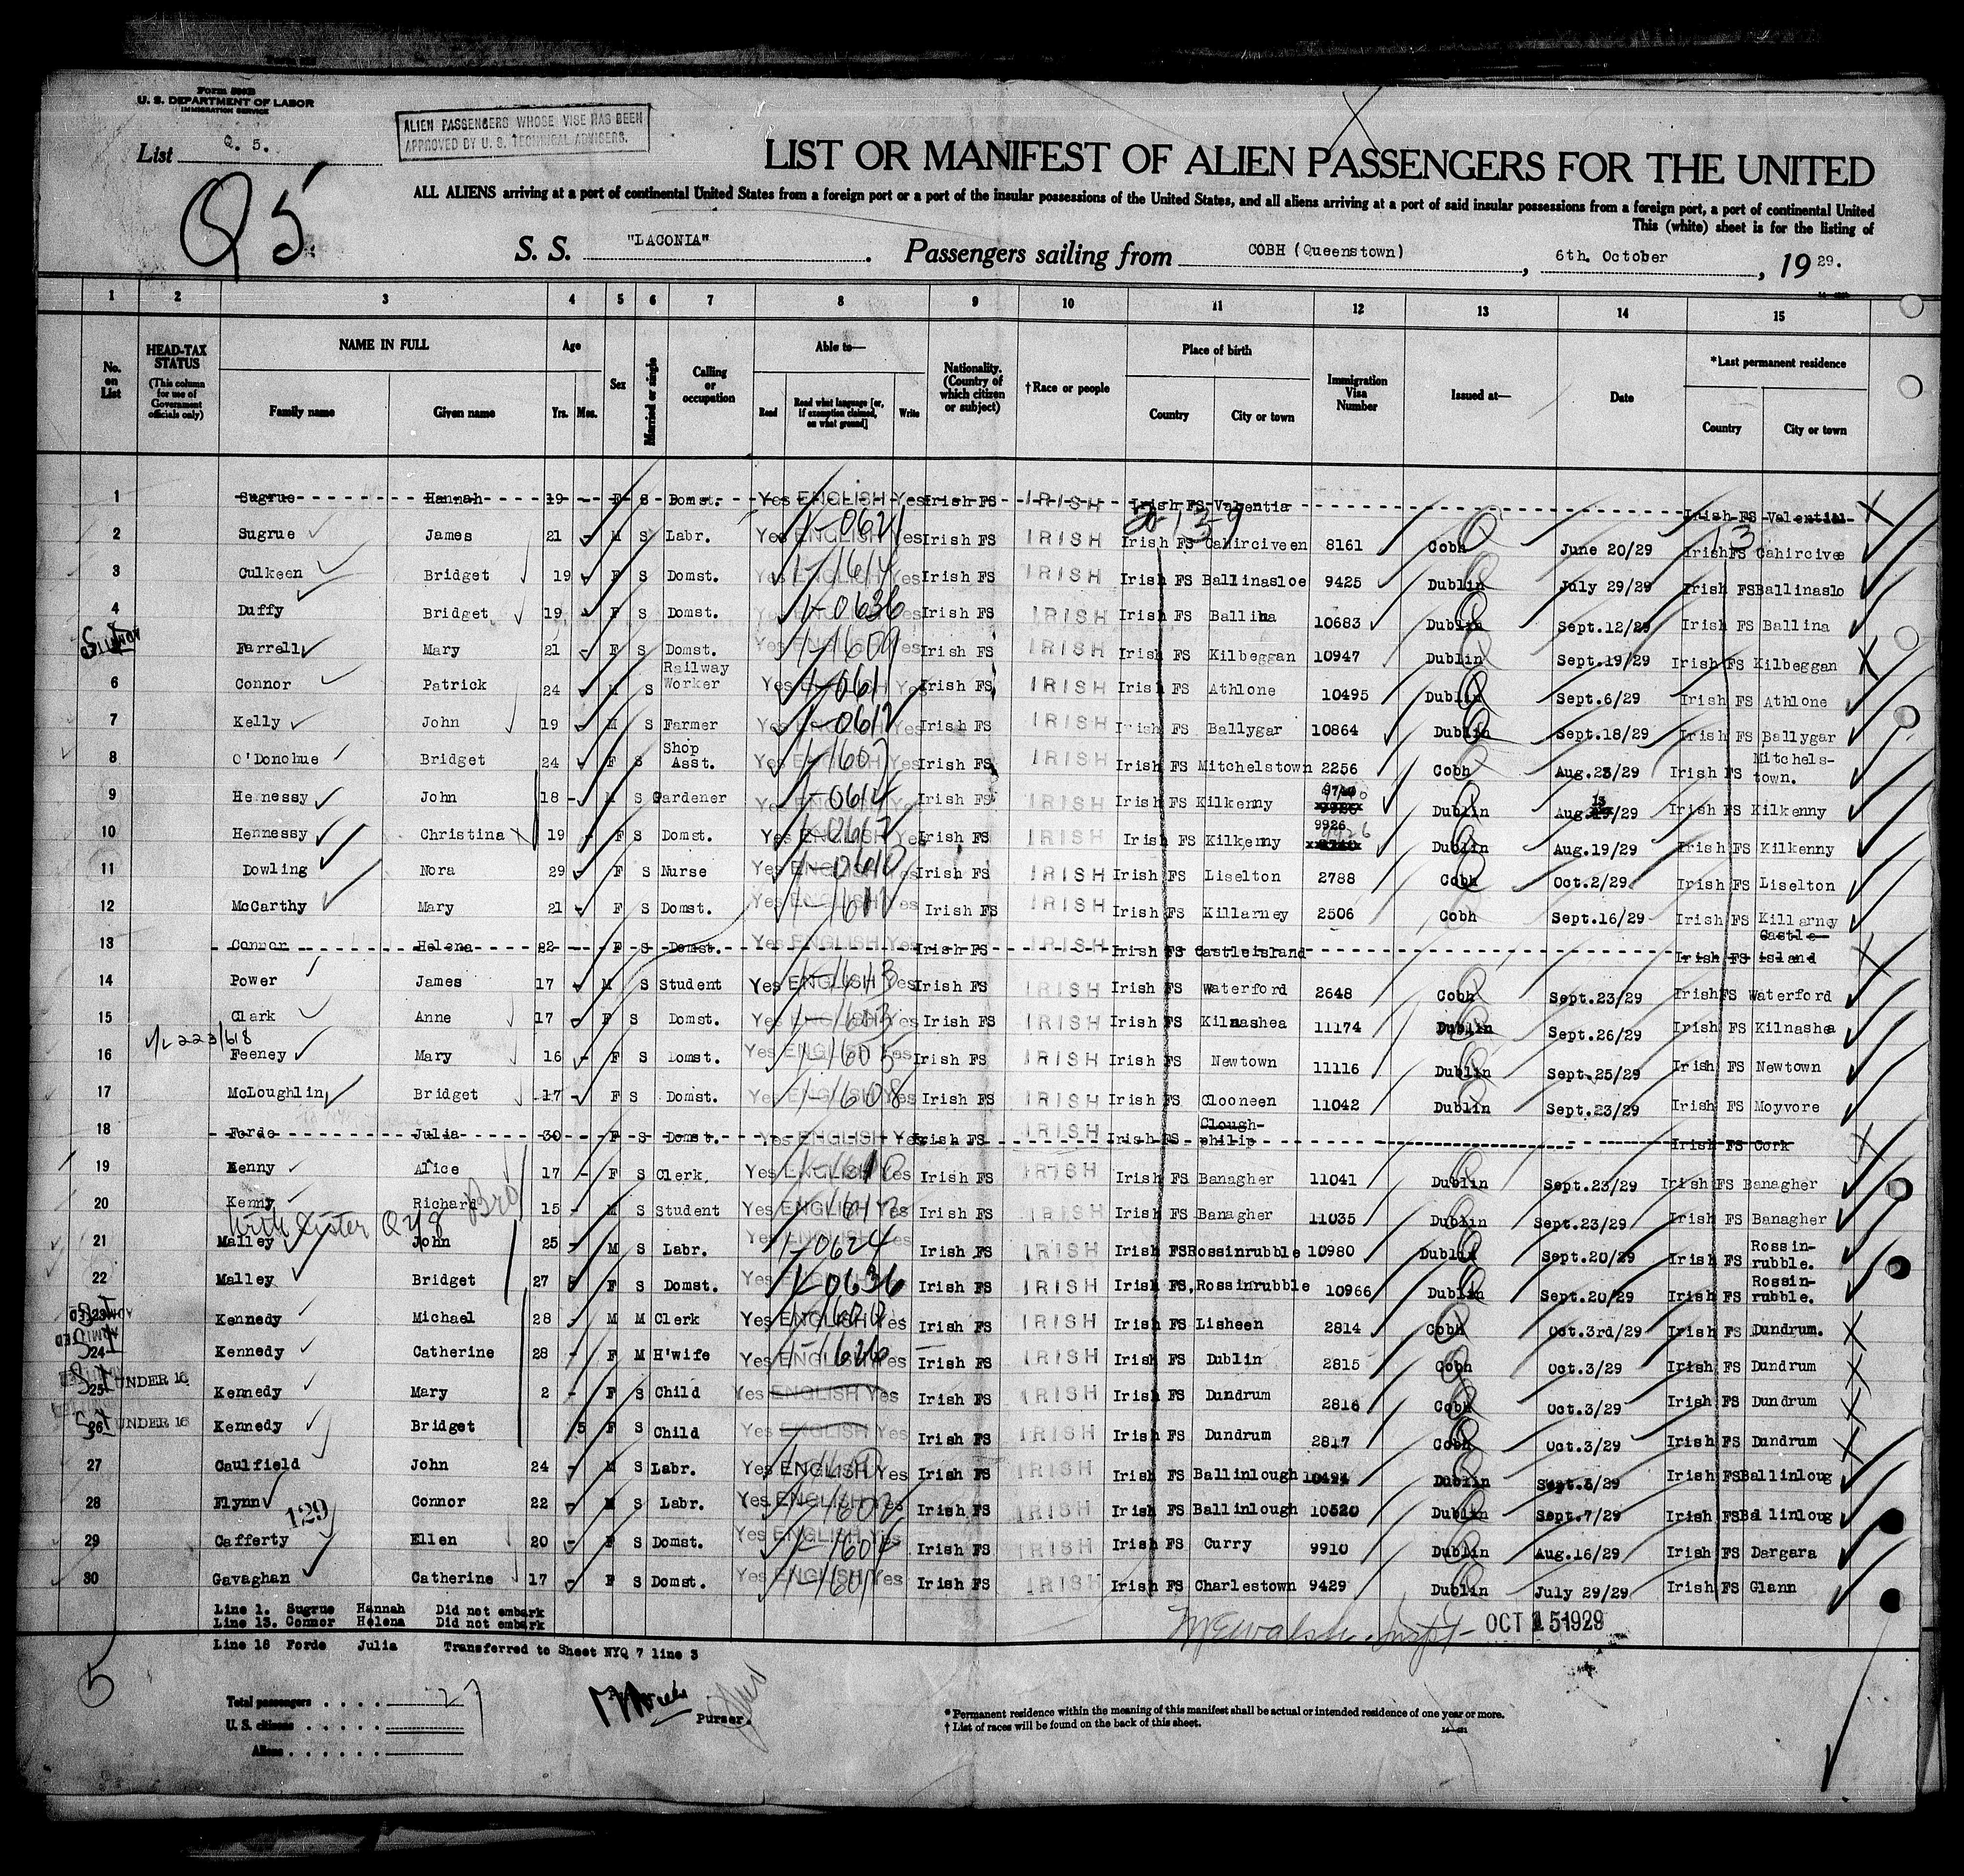 Form 500B
U. S. DEPARTMENT OF LABOR
IMMIGRATION SERVICE
ALIEN PASSENGERS WHOSE VISE HAS BEEN
APPROVED BY U. S. TECHNICAL ADVISERS.
List Q. 5.
Q5
LIST OR MANIFEST OF ALIEN PASSENGERS FOR THE UNITED
ALL ALIENS arriving at a port of continental United States from a foreign port or a port of the insular possessions of the United States, and all aliens arriving at a port of said insular possessions from a foreign port, a port of continental United
This (white) sheet is for the listing of
S. S. "LACONIA" . Passengers sailing from COBH (Queenstown) , 6th. October , 19 29.
1 2 3 4 5 6 7 8 9 10 11 12 13 14 15
No. on List
HEAD-TAX STATUS (This column for use of Government officials only)
NAME IN FULL Family name Given name
Age Yrs. Mos.
Sex
Married or single
Calling or occupation
Able to— Read Read what language [or, if exemption claimed, on what ground] Write
Nationality. (Country of which citizen or subject)
†Race or people
Place of birth Country City or town
Immigration Visa Number
Issued at—
Date
*Last permanent residence Country City or town
1 Sugrue Hannah 19 - F S Domst. Yes ENGLISH Yes Irish FS IRISH Irish FS Valentia Irish FS Valentia
20-13-9
2 Sugrue James 21 - M S Labr. Yes ENGLISH Yes 1-0621 Irish FS IRISH Irish FS Cahirciveen 8161 Cobh June 20/29 Irish FS Cahircivee
3 Culkeen Bridget 19 F S Domst. Yes ENGLISH Yes 1-1614 Irish FS IRISH Irish FS Ballinasloe 9425 Dublin July 29/29 Irish FS Ballinaslo
4 Duffy Bridget 19 F S Domst. 1-0636 Irish FS IRISH Irish FS Ballina 10683 Dublin Sept.12/29 Irish FS Ballina
ADMITTED Farrell Mary 21 - F S Domst. Yes ENGLISH Yes 1-1609 Irish FS IRISH Irish FS Kilbeggan 10947 Dublin Sept.19/29 Irish FS Kilbeggan
6 Connor Patrick 24 M S Railway Worker Yes ENGLISH Yes 1-061 Irish FS IRISH Irish FS Athlone 10495 Dublin Sept.6/29 Irish FS Athlone
7 Kelly John 19 M S Farmer Yes ENGLISH Yes 1-0612 Irish FS IRISH Irish FS Ballygar 10864 Dublin Sept.18/29 Irish FS Ballygar
8 O'Donohue Bridget 24 F S Shop Asst. Yes ENGLISH Yes 1-1607 Irish FS IRISH Irish FS Mitchelstown 2256 Cobh Aug.23/29 Irish FS Mitchels-town.
9 Hennessy John 18 - M S Gardener Yes ENGLISH Yes 1-0614 Irish FS IRISH Irish FS Kilkenny Dublin Aug. 13/29 Irish FS Kilkenny
10 Hennessy Christina 19 - F S Domst. Yes ENGLISH Yes Irish FS IRISH Irish FS Kilkenny 9926 9926 Dublin Aug.19/29 Irish FS Kilkenny
11 Dowling Nora 29 F S Nurse Yes ENGLISH Yes 1-0610 Irish FS IRISH Irish FS Liselton 2788 Cobh Oct.2/29. Irish FS Liselton
12 McCarthy Mary 21 F S Domst. Yes ENGLISH Yes Irish FS IRISH Irish FS Killarney 2506 Cobh Sept.16/29 Irish FS Killarney
13 Connor Helena 22 - F S Domst. Yes ENGLISH Yes Irish FS IRISH Irish FS Castleisland Irish FS Castle-island
14 Power James 17 M S Student Yes ENGLISH Yes 1-1613 Irish FS IRISH Irish FS Waterford 2648 Cobh Sept.23/29 Irish FS Waterford
15 Clark Anne 17 F S Domst. Yes ENGLISH Yes 1-1603 Irish FS IRISH Irish FS Kilnashea 11174 Dublin Sept.26/29 Irish FS Kilnashea
16 Feeney Mary 16 F S Domst. Yes ENGLISH Yes 1-1605 Irish FS IRISH Irish FS Newtown 11116 Dublin Sept.25/29 Irish FS Newtown
17 McLoughlin Bridget 17 F S Domst. Yes ENGLISH Yes 1-1608 Irish FS IRISH Irish FS Clooneen 11042 Dublin Sept.23/29 Irish FS Moyvore
18 Forde Julia 30 - F S Domst. Yes ENGLISH Yes Irish FS IRISH Irish FS Clough-philip Irish FS Cork
19 Kenny Alice 17 - F S Clerk. Yes ENGLISH Yes Irish FS IRISH Irish FS Banagher 11041 Dublin Sept.23/29 Irish FS Banagher
20 Kenny Richard Bro 15 - M S Student Yes ENGLISH Yes Irish FS IRISH Irish FS Banagher 11035 Dublin Sept.23/29 Irish FS Banagher
With Sister
21 Malley John 25 - M S Labr. Yes ENGLISH Yes 1-0624 Irish FS IRISH Irish FS Rossinrubble 10980 Dublin Sept.20/29 Irish FS Rossin-rubble.
22 Malley Bridget 27 F S Domst. Yes 1-0636 Irish FS IRISH Irish FS, Rossinrubble 10966 Dublin Sept.20/29 Irish FS Rossin-rubble.
ADMITTED 23 Kennedy Michael 28 M M Clerk Yes ENGLISH Yes Irish FS IRISH Irish FS Lisheen 2814 Cobh Oct.3rd/29 Irish FS Dundrum.
ADMITTED 24 Kennedy Catherine 28 - F M H'wife Yes ENGLISH Yes 1-1626 Irish FS IRISH Irish FS Dublin 2815 Cobh Oct.3/29 Irish FS Dundrum
25 UNDER 16 Kennedy Mary 2 - F S Child Yes ENGLISH Yes Irish FS IRISH Irish FS Dundrum 2816 Cobh Oct.3/29 Irish FS Dundrum
26 UNDER 16 Kennedy Bridget 5 F S Child Yes ENGLISH Yes Irish FS IRISH Irish FS Dundrum 2817 Cobh Oct.3/29 Irish FS Dundrum
27 Caulfield John 24 - M S Labr. Yes ENGLISH Yes Irish FS IRISH Irish FS Ballinlough 10494 Dublin Sept.3/29 Irish FS Ballinloug
28 Flynn Connor 22 M S Labr. Yes ENGLISH Yes 1-1602 Irish FS IRISH Irish FS Ballinlough 10520 Dublin Sept.7/29 Irish FS Ballinloug
129
29 Cafferty Ellen 20 - F S Domst. Yes ENGLISH Yes 1-1604 Irish FS IRISH Irish FS Curry 9910 Dublin Aug.16/29 Irish FS Dargara
30 Gavaghan Catherine 17 F S Domst. Yes ENGLISH Yes 1-1601 Irish FS IRISH Irish FS Charlestown 9429 Dublin July 29/29 Irish FS Glann
Line 1. Sugrue Hannah Did not embark
Line 13. Connor Helena Did not embark
OCT 15 1929
Line 18 Forde Julia Transferred to Sheet NYQ 7 line 3
5
Total passengers . . . . 27
U. S. citizens . . . . .
Aliens . . . . . .
Purser.
* Permanent residence within the meaning of this manifest shall be actual or intended residence of one year or more.
† List of races will be found on the back of this sheet.